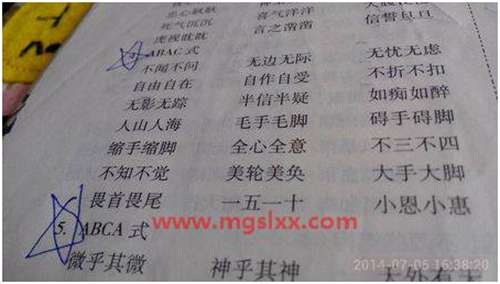 死气沉沉 喜气洋洋 信誓旦旦
虎视眈眈 言之凿凿
ABAC 式
不闻不问 无边无际 无忧无虑
自由自在 自作自受 不折不扣
无影无踪 半信半疑 如痴如醉
人山人海 毛手毛脚 碍手碍脚
缩手缩脚 全心全意 不三不四
不知不觉 美轮美奂 大手大脚
畏首畏尾 一五一十 小恩小惠
www.mgslxx.com
5. ABCA 式
微乎其微 神乎其神 天外有天
2014-07-05 16:38:20